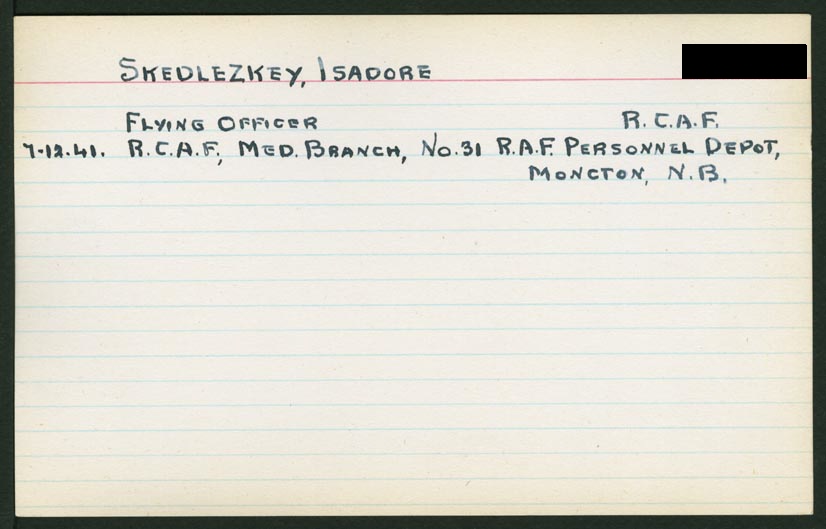 SKEDLEZKEY, ISADORE
FLYING OFFICER R.C.A.F.
7-12-41. R.C.A.F., MED. BRANCH, NO.31 R.A.F. PERSONNEL DEPOT,
MONCTON, N.B.